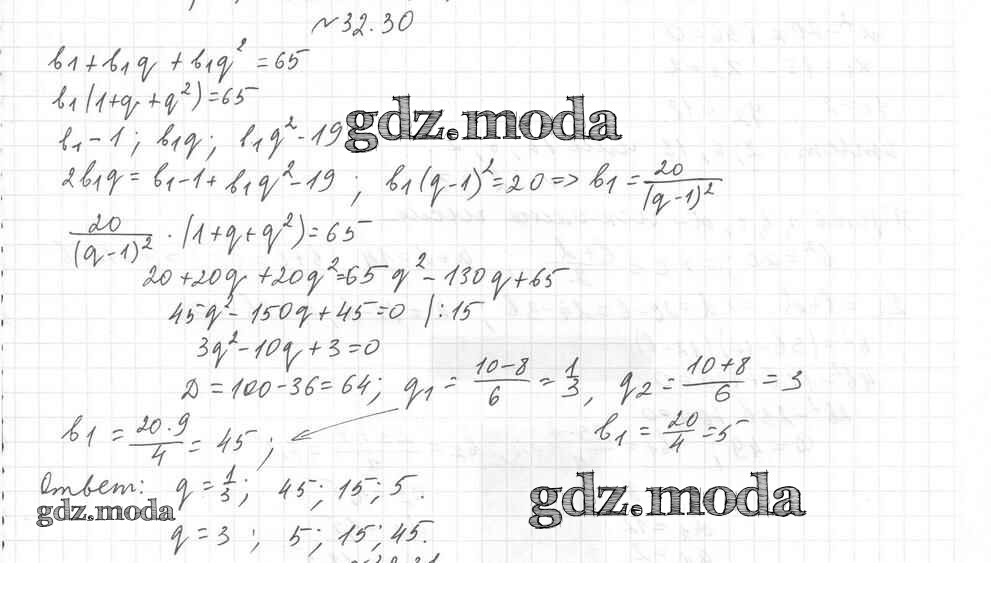 №32.30
b1+b1q+b1q²=65
b1(1+q+q²)=65
gdz.moda
b1-1; b1q; b1q²-19
2b1q=b1-1+b1q²-19; b1(q-1)²=20=>b1=20/(q-1)²
20/(q-1)²·(1+q+q²)=65
20+20q+20q²=65q²-130q+65
45q²-150q+45=0 |:15
3q²-10q+3=0
D=100-36=64; q1=(10-8)/6=1/3, q2=(10+8)/6=3
b1=(20·9)/4=45; b1=20/4=5
Ответ: q=1/3; 45; 15; 5.
gdz.moda
gdz.moda
q=3; 5; 15; 45.